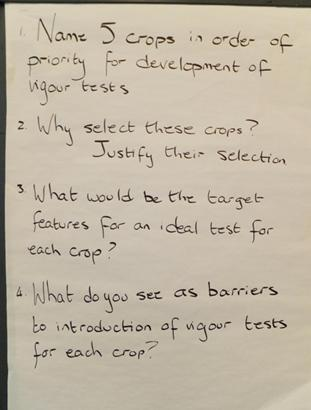 1. Name 5 crops in order of
priority for development of
vigour tests
2. Why select these crops?
Justify their selection
3 What would be the target
features for an ideal test for
each crop?
4. What do you see as barriers
to introduction of vigour tests
for each crop?